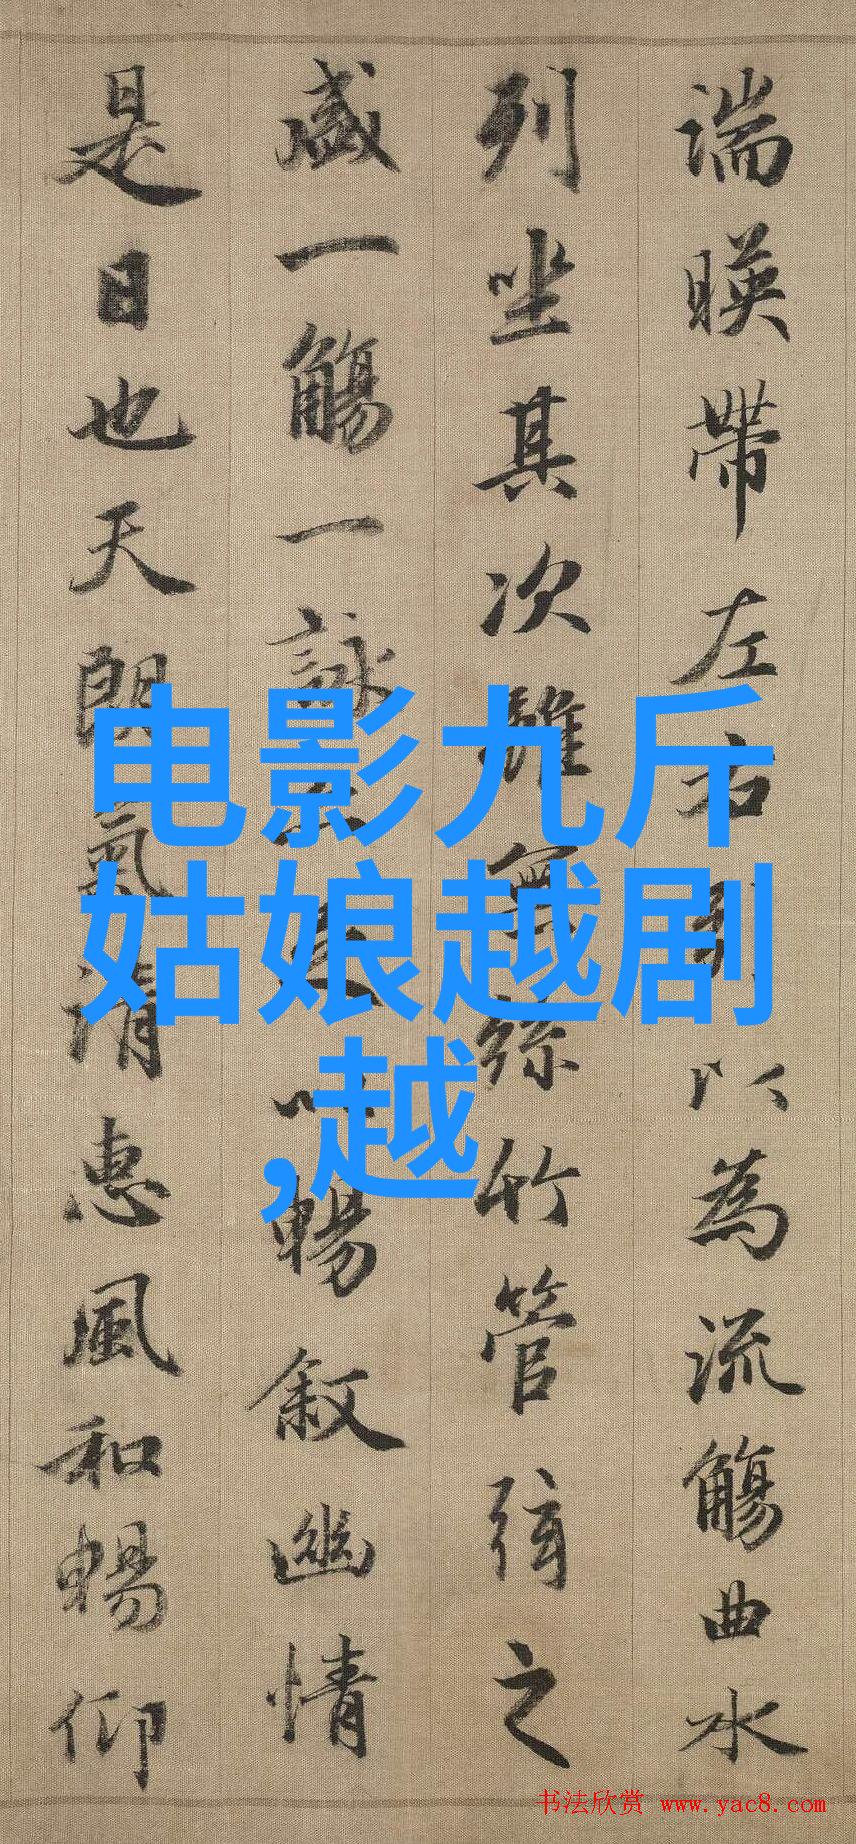 湍暎帶左右引以為流觴曲水
列坐其次雖無絲竹管弦之
盛一觴一詠以暢叙幽情
是日也天朗氣清惠風和暢仰
电影九斤
姑娘越剧
,越
书法欣赏 www.yac8.com